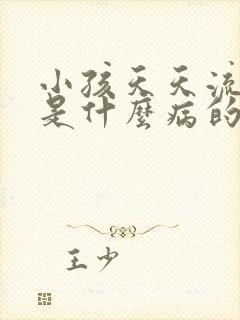 小孩天天流
是什麼病的
王少